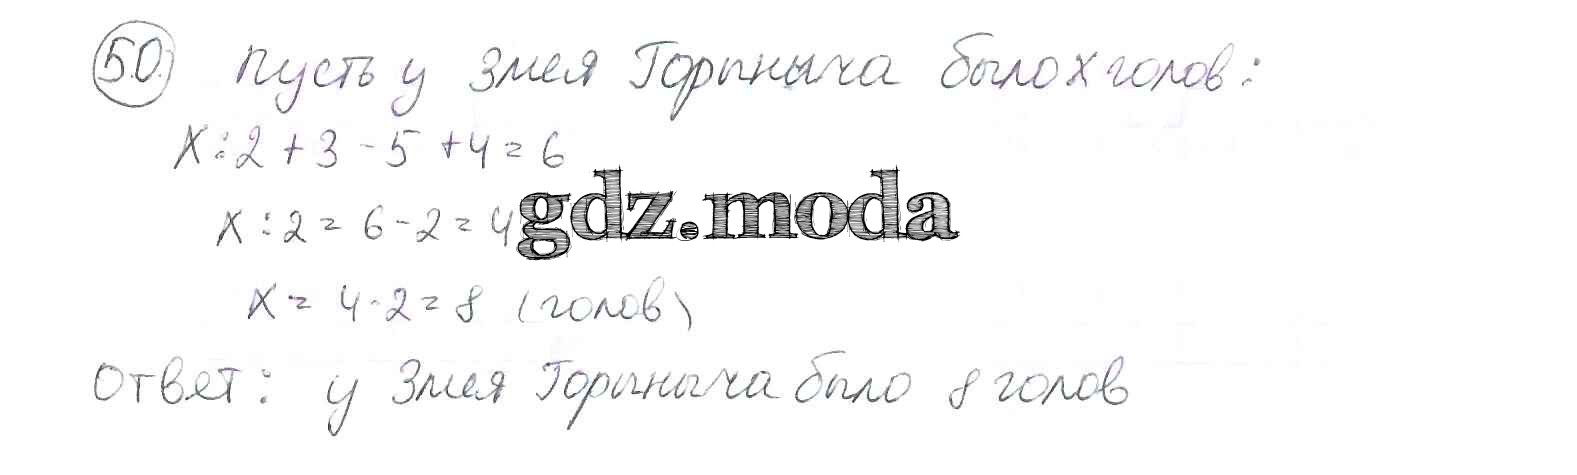 50. Пусть у Змея Горыныча было x голов:
x : 2 + 3 - 5 + 4 = 6
x : 2 = 6 - 2 = 4
gdz.moda
x = 4 · 2 = 8 (голов)
Ответ: у Змея Горыныча было 8 голов